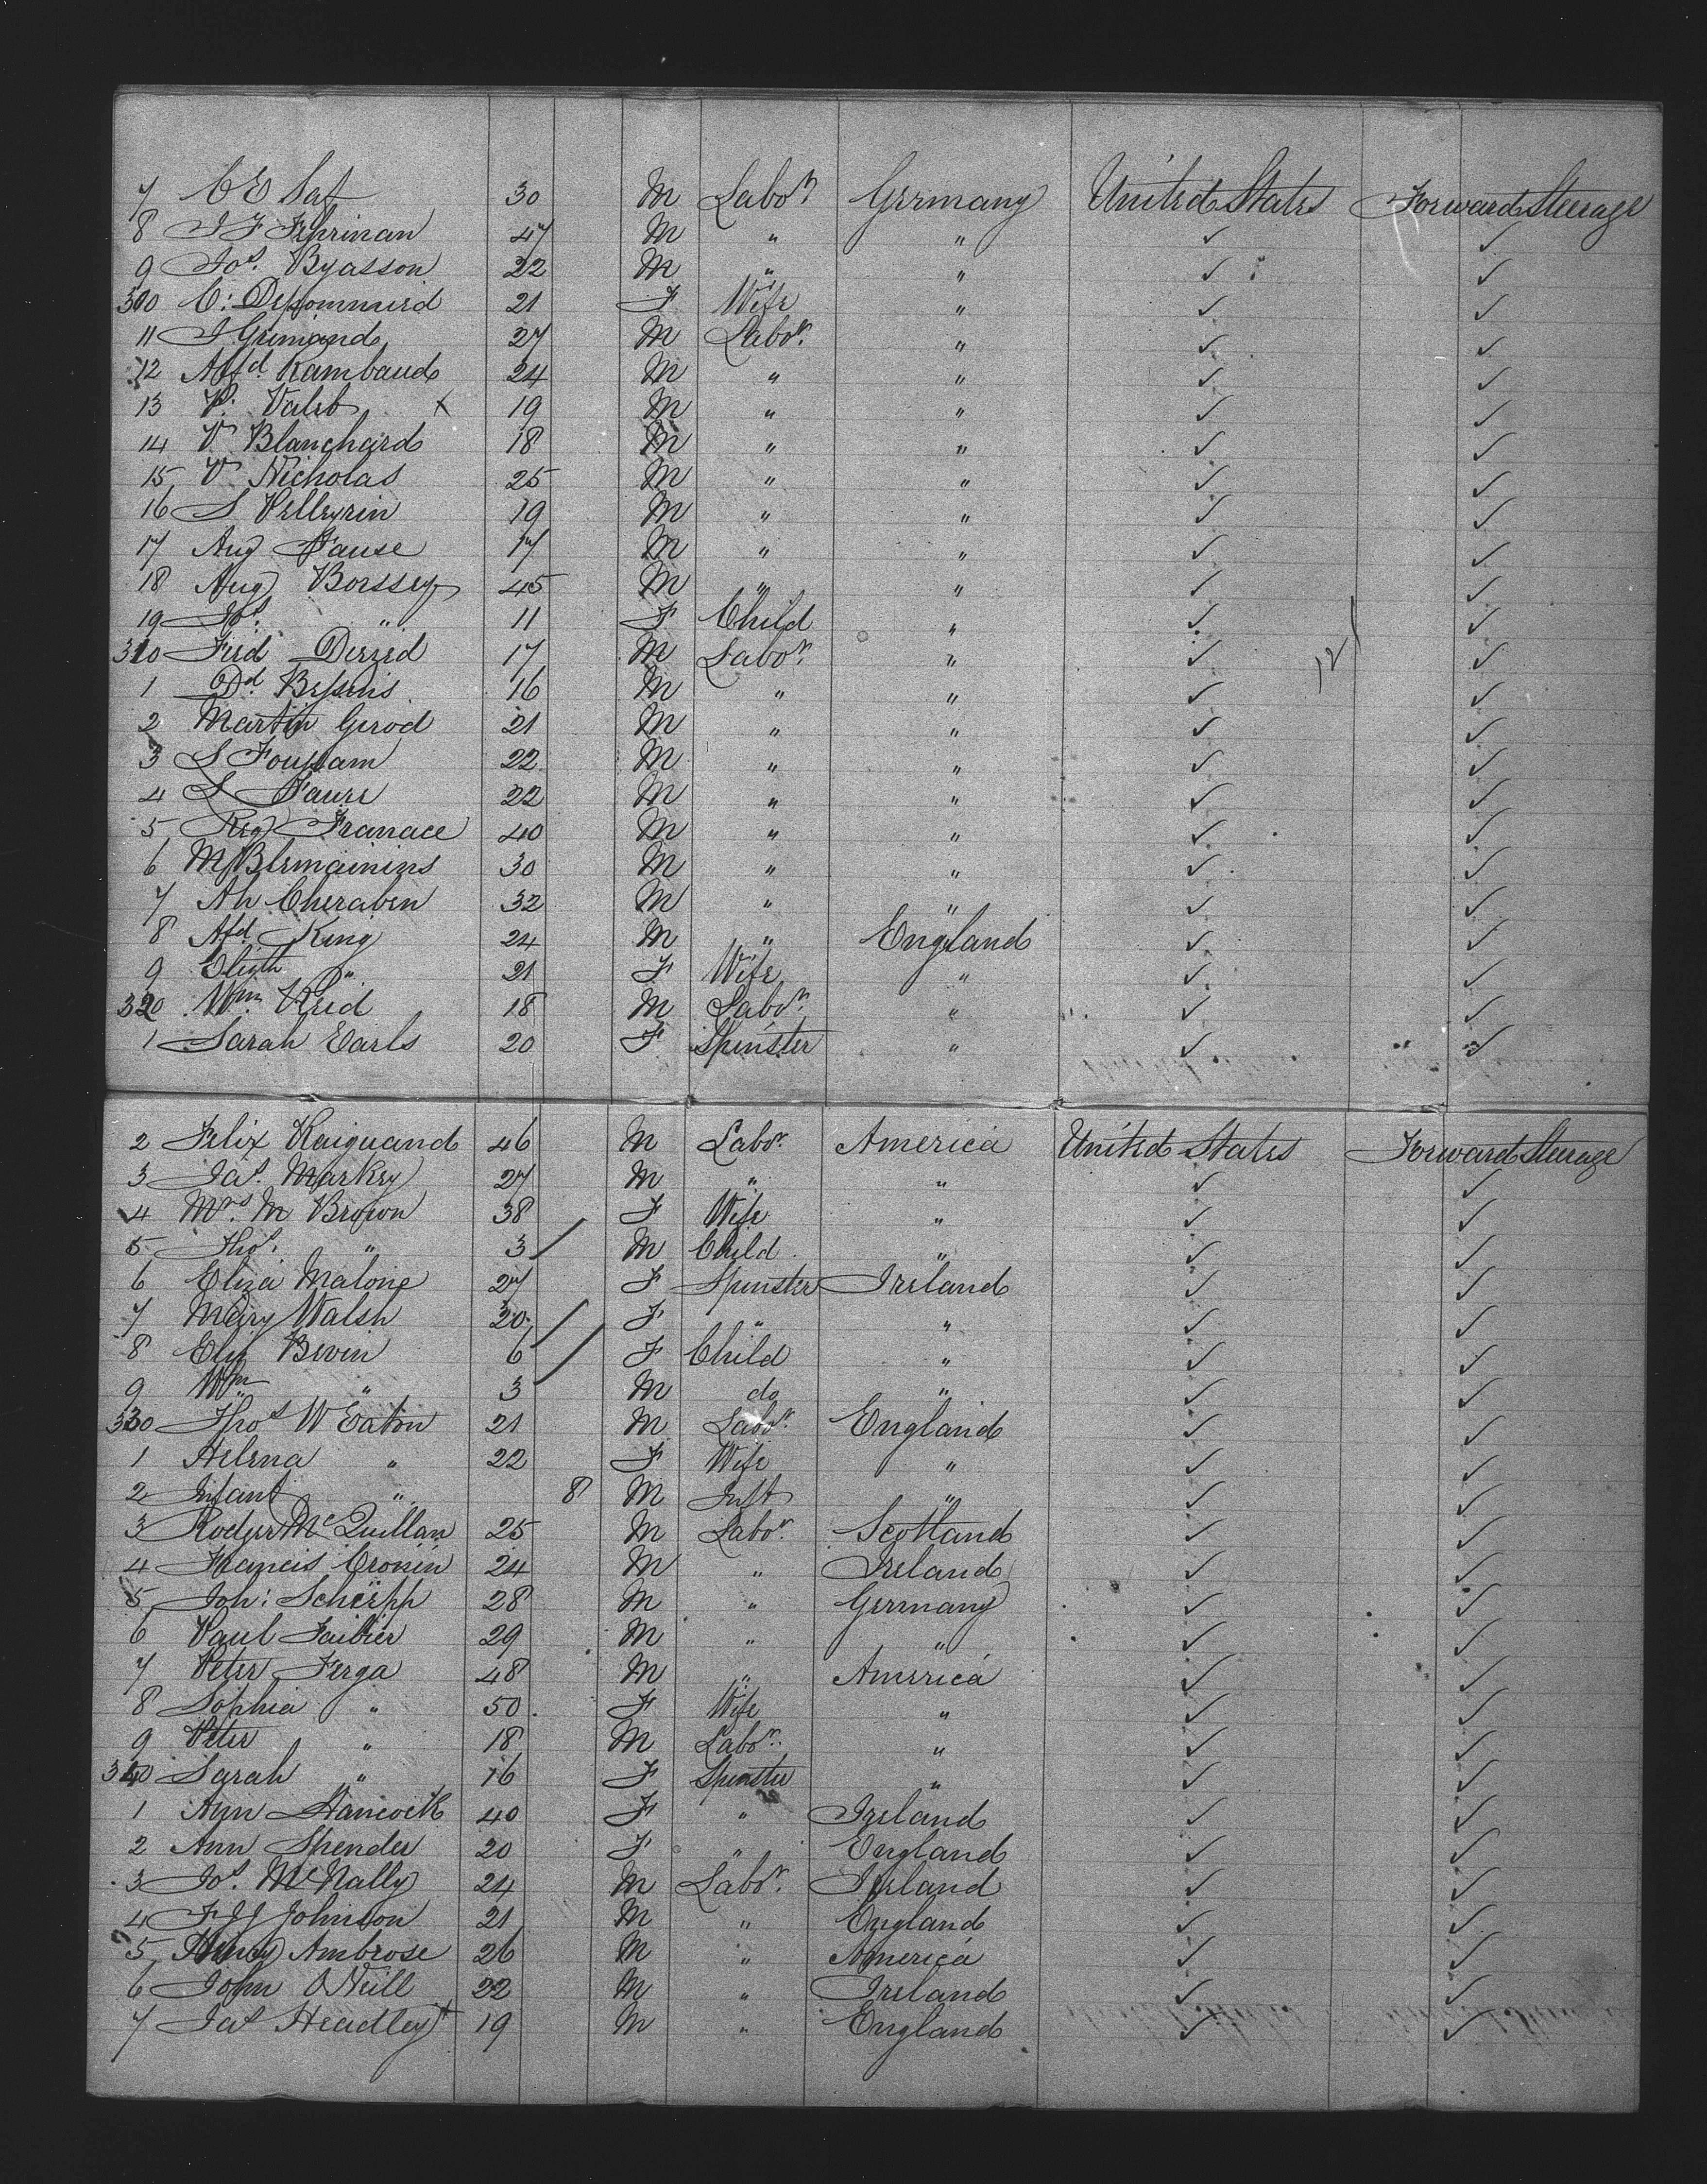 7 C E Saf 30 M Labor Germany United States Forward Steerage
8 J F 47 M " " ✓ ✓
9 Jos. Byasson 22 M " " ✓ ✓
300 C: 21 F Wife " ✓ ✓
11 J Grimand 27 M Labor. " ✓ ✓
12 Alfd. Rambaud 24 M " " ✓ ✓
13 P. X 19 M " " ✓ ✓
14 V Blanchard 18 M " " ✓ ✓
15 V Nicholas 25 M " " ✓ ✓
16 S Pellegrin 19 M " " ✓ ✓
17 Aug Fause 17 M " " ✓ ✓
18 Aug Borssey 45 M " " ✓ ✓
19 Jos. " 11 F Child " ✓ ✓
310 Frid 17 M Labor. " ✓ 121 ✓
1 16 M " " ✓ ✓
2 Martin Gerod 21 M " " ✓ ✓
3 S Foussam 22 M " " ✓ ✓
4 L Faure 22 M " " ✓ ✓
5 Reg Franace 40 M " " ✓ ✓
6 M 30 M " " ✓ ✓
7 Ah Cheraben 32 M " " ✓ ✓
8 Alfd King 24 M " England ✓ ✓
9 Elizth " 21 F Wife " ✓ ✓
320 Wm. Reid 18 M Labor. " ✓ ✓
1 Sarah Earls 20 F Spinster " ✓ " ✓
2 Felix Raiguand 46 M Labor. America United States Forward Steerage
3 Jas. Markey 27 M " " ✓ ✓
4 Mrs. M Brown 38 F Wife " ✓ ✓
5 Thos. " 3 M Child " ✓ ✓
6 Eliza Malone 27 F Spinster Ireland ✓ ✓
7 Mary Walsh 20 F " " ✓ ✓
8 Eliz Bevin 6 F Child " ✓ ✓
9 Wm " 3 M do " ✓ ✓
330 Thos W Eaton 21 M Labor. England ✓ ✓
1 Helena " 22 F Wife " ✓ ✓
2 Infant " 8 M Inft " ✓ ✓
3 Rodger McQuillan 25 M Labor. Scotland ✓ ✓
4 Francis Cronin 24 M " Ireland ✓ ✓
5 Joh: Scherpp 28 M " Germany ✓ ✓
6 Paul Faibier 29 M " " ✓ ✓
7 Peter Ferga 48 M " America ✓ ✓
8 Sophia " 50 F Wife " ✓ ✓
9 Peter " 18 M Labor. " ✓ ✓
340 Sarah " 16 F Spinster " ✓ ✓
1 Ann Hancock 40 F " Ireland ✓ ✓
2 Ann Spender 20 F " England ✓ ✓
3 Jos. McNally 24 M Labor. Ireland ✓ ✓
4 F J J Johnson 21 M " England ✓ ✓
5 Henry Ambrose 26 M " America ✓ ✓
6 John O Neill 22 M " Ireland ✓ ✓
7 Jas Headley 19 M " England ✓ ✓